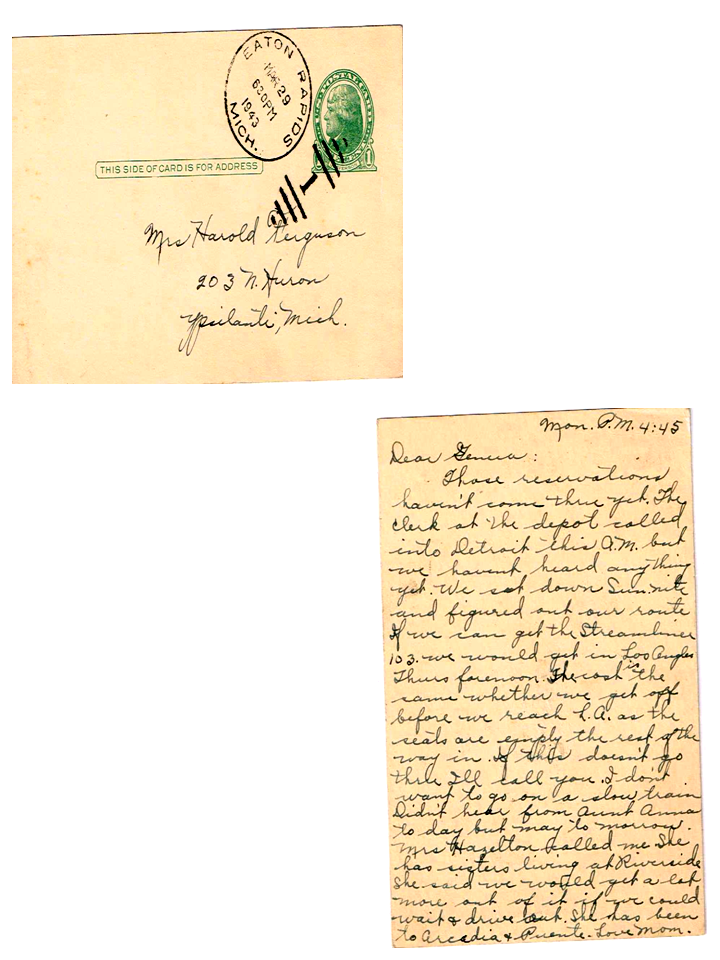 EATON RAPIDS
MAR 29
630PM
1943
MICH.
U.S. POSTAL CARD
1
THIS SIDE OF CARD IS FOR ADDRESS
Mrs Harold Ferguson
203 N. Huron
Ypsilanti, Mich.
Mon. P.M. 4:45
Dear Geneva:
Those reservations
haven't come thru yet. The
clerk at the depot called
into Detroit this A.M. but
we havent heard anything
yet. We sat down Sun. nite
and figured out our route
If we can get the Streamliner
103. we would get in Los Angles
Thurs forenoon. The cost is the
same whether we get off
before we reach L.A. as the
seats are empty the rest of the
way in. If this doesn't go
thru I'll call you. I don't
want to go on a slow train
Didn't hear from Aunt Anna
to day but may to morrow.
Mrs Hazelton called me She
has sisters living at Riverside
She said we would get a lot
more out of it if we could
wait & drive out. She has been
to Arcadia & Puente. Love Mom.